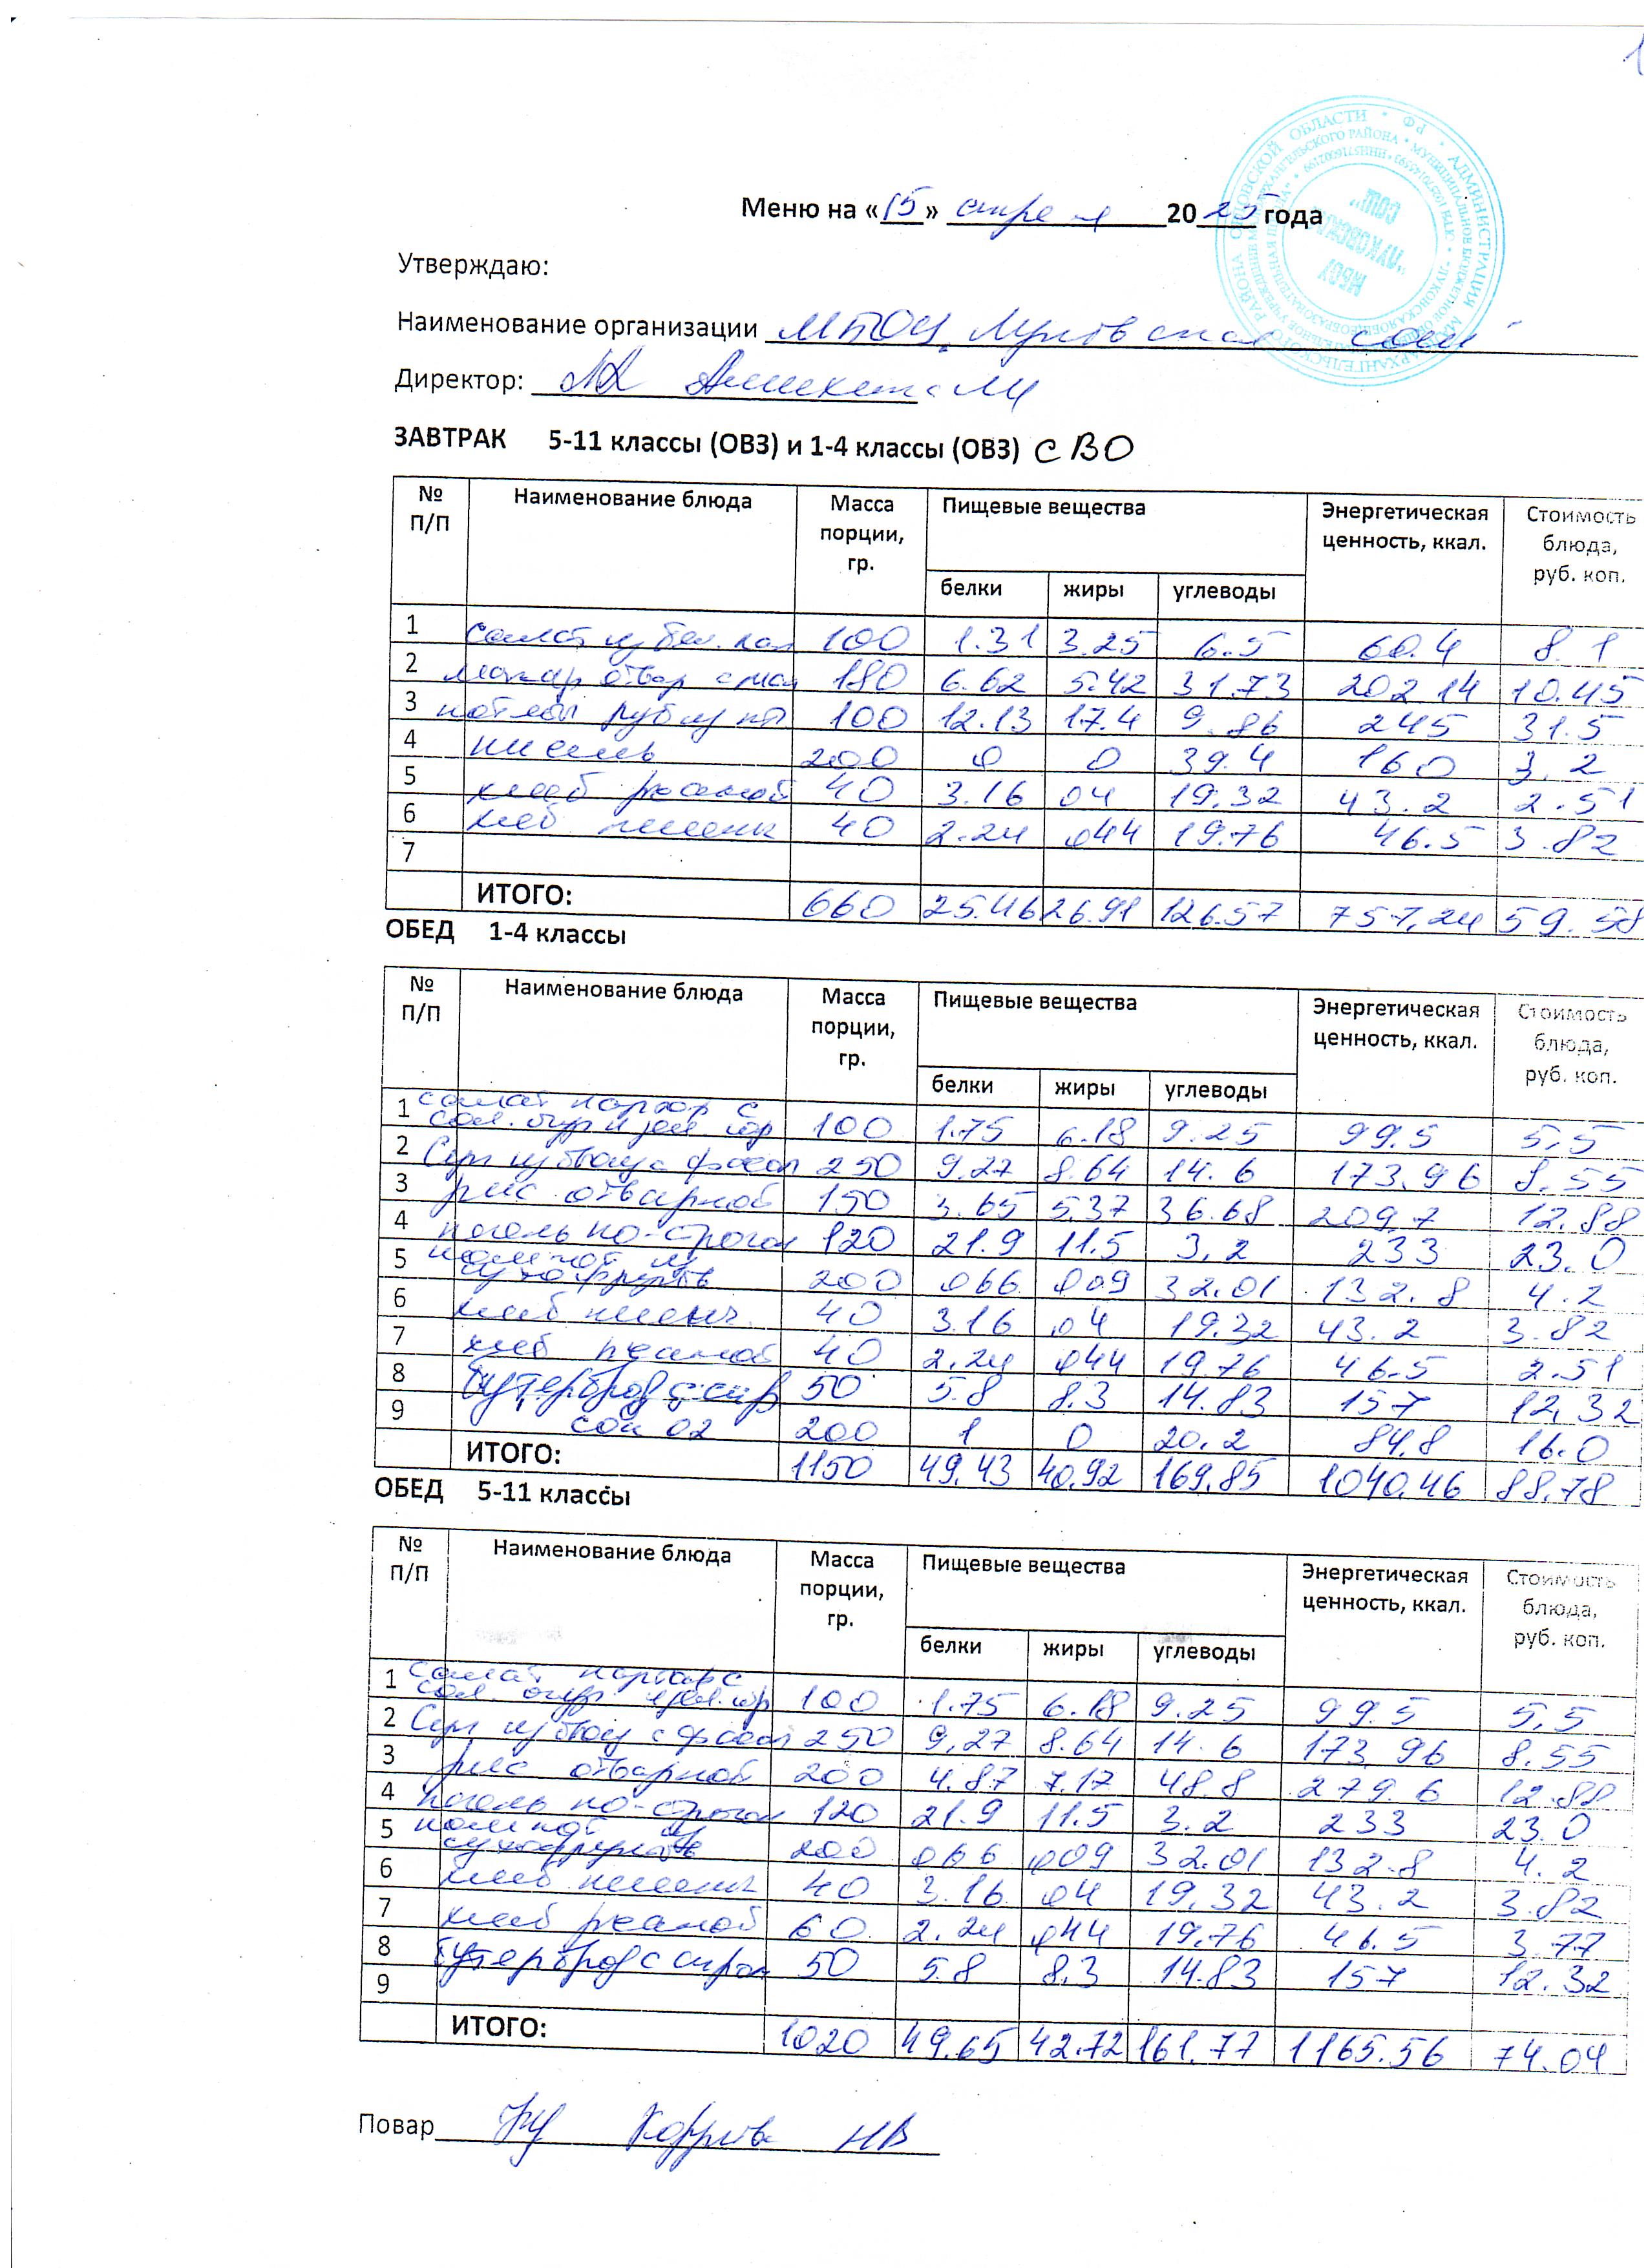 Меню на «15» апреля 2025 года
Утверждаю:
Наименование организации МБОУ Луковская СОШ
Директор:
ЗАВТРАК 5-11 классы (ОВЗ) и 1-4 классы (ОВЗ) СВО
№ П/П Наименование блюда Масса порции, гр. Пищевые вещества Энергетическая ценность, ккал. Стоимость блюда, руб. коп.
белки жиры углеводы
1 салат из бел. кап 100 1.31 3.25 6.5 60.4 8.1
2 макар отвар с мал 180 6.62 5.42 31.73 202.14 10.45
3 котлеты руб из пт 100 12.13 17.4 9.86 245 31.5
4 кисель 200 0 0 39.4 160 3.2
5 хлеб ржаной 40 3.16 04 19.32 43.2 2.51
6 хлеб пшенич 40 2.24 044 19.76 46.5 3.82
7
ИТОГО: 660 25.46 26.91 126.57 757,24 59.58
ОБЕД 1-4 классы
№ П/П Наименование блюда Масса порции, гр. Пищевые вещества Энергетическая ценность, ккал. Стоимость блюда, руб. коп.
белки жиры углеводы
1 салат картоф с
сол. огур и зел гор 100 1.75 6.18 9.25 99.5 5,5
2 Суп из овощ с фасол 250 9.27 8.64 14.6 173.96 8.55
3 рис отварной 150 3.65 5.37 36.68 209,7 12.88
4 120 21.9 11.5 3,2 233 23.0
5 компот из
сухофруктов 200 066 009 32.01 132.8 4.2
6 хлеб пшенич. 40 3.16 04 19.32 43.2 3.82
7 хлеб ржаной 40 2.24 044 19.76 46.5 2.51
8 бутерброд с сыр 50 5.8 8.3 14.83 157 12,32
9 сок 02 200 1 0 20.2 84,8 16.0
ИТОГО: 1150 49.43 40.92 169.85 1040.46 88.78
ОБЕД 5-11 классы
№ П/П Наименование блюда Масса порции, гр. Пищевые вещества Энергетическая ценность, ккал. Стоимость блюда, руб. коп.
белки жиры углеводы
1 Салат картоф с
сол. огур. и зел. гор 100 1.75 6.18 9.25 99.5 5,5
2 Суп из овощ с фасол 250 9,27 8.64 14.6 173.96 8.55
3 рис отварной 200 4.87 7.17 48.8 279.6 12.88
4 120 21.9 11.5 3.2 233 23.0
5 компот из
сухофруктов 200 066 009 32.01 132.8 4.2
6 хлеб пшенич 40 3.16 04 19,32 43.2 3.82
7 хлеб ржаной 60 2.24 044 19.76 46.5 3.77
8 бутерброд с сыром 50 5.8 8,3 14.83 157 12.32
9
ИТОГО: 1020 49.65 42.72 161.77 1165.56 74.04
Повар НВ